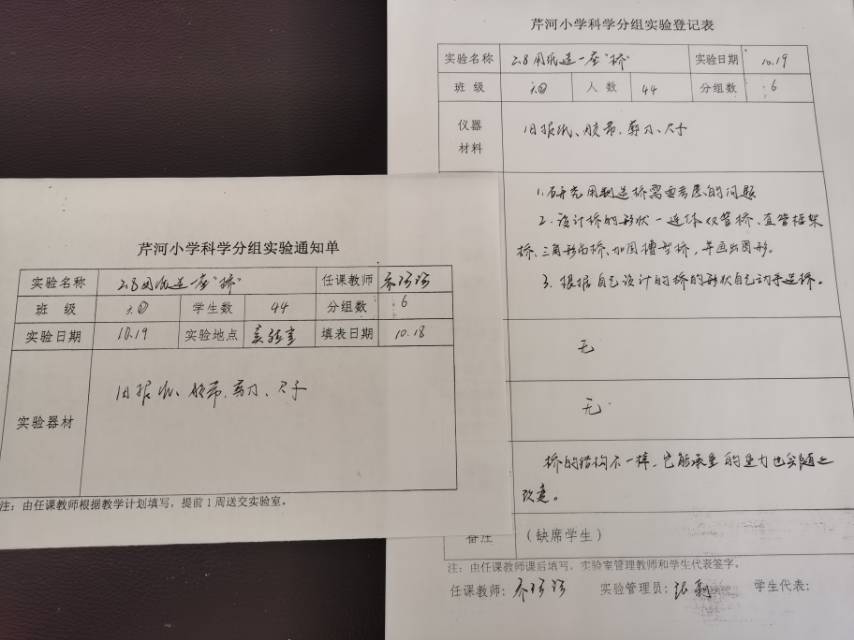 芹河小学科学分组实验登记表
实验名称 2.8用纸造一座"桥" 实验日期 10.19
班 级 六④ 人 数 44 分组数 6
仪器
材料
旧报纸、胶带、剪刀、尺子
1.研究用纸造桥需要考虑的问题
2.设计桥的形状一连体双管桥、直管框架
桥、三角形面桥、加固槽型桥,并画出图形。
3.根据自己设计的桥的形状自己动手造桥。
无
无
桥的结构不一样,它能承重的重力也会随之
改变。
备注 (缺席学生)
注:由任课教师课后填写,实验室管理教师和学生代表签字。
任课教师: 实验管理员: 学生代表:
芹河小学科学分组实验通知单
实验名称 2.8用纸造一座"桥" 任课教师
班 级 六④ 学生数 44 分组数 6
实验日期 10.19 实验地点 实验室 填表日期 10.18
实验器材
旧报纸、胶带、剪刀、尺子
注:由任课教师根据教学计划填写,提前1周送交实验室。